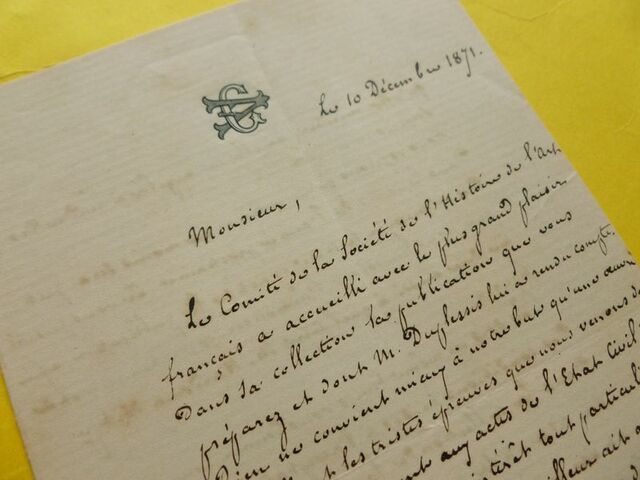 Le 10 Décembre 1871.
Monsieur,
Le Comité de la Société de l'Histoire de l'Art
français a accueilli avec le plus grand plaisir
Dans sa collection la publication que vous
préparez et dont M. Duplessis lui a rendu compte.
Rien ne convient mieux à notre but qu'une œuvre
les tristes épreuves que nous venons de
aux actes de l'Etat Civil
intérêt tout particuli
ait